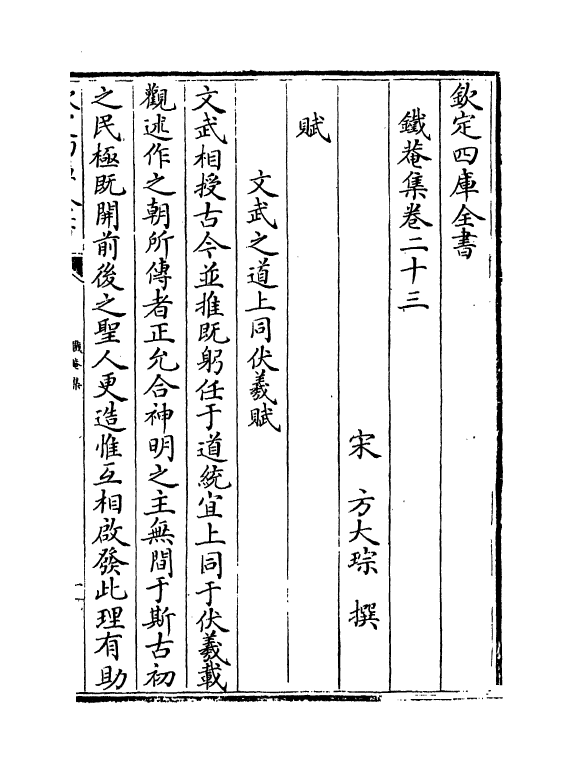 欽定四庫全書
鐵菴集卷二十三
宋 方大琮 撰
賦
文武之道上同伏羲賦
文武相授古今並推既躬任于道統宜上同于伏羲載
觀述作之朝所傳者正允合神明之主無間于斯古初
之民極既開前後之聖人更造惟互相啟發此理有助
鐵菴集